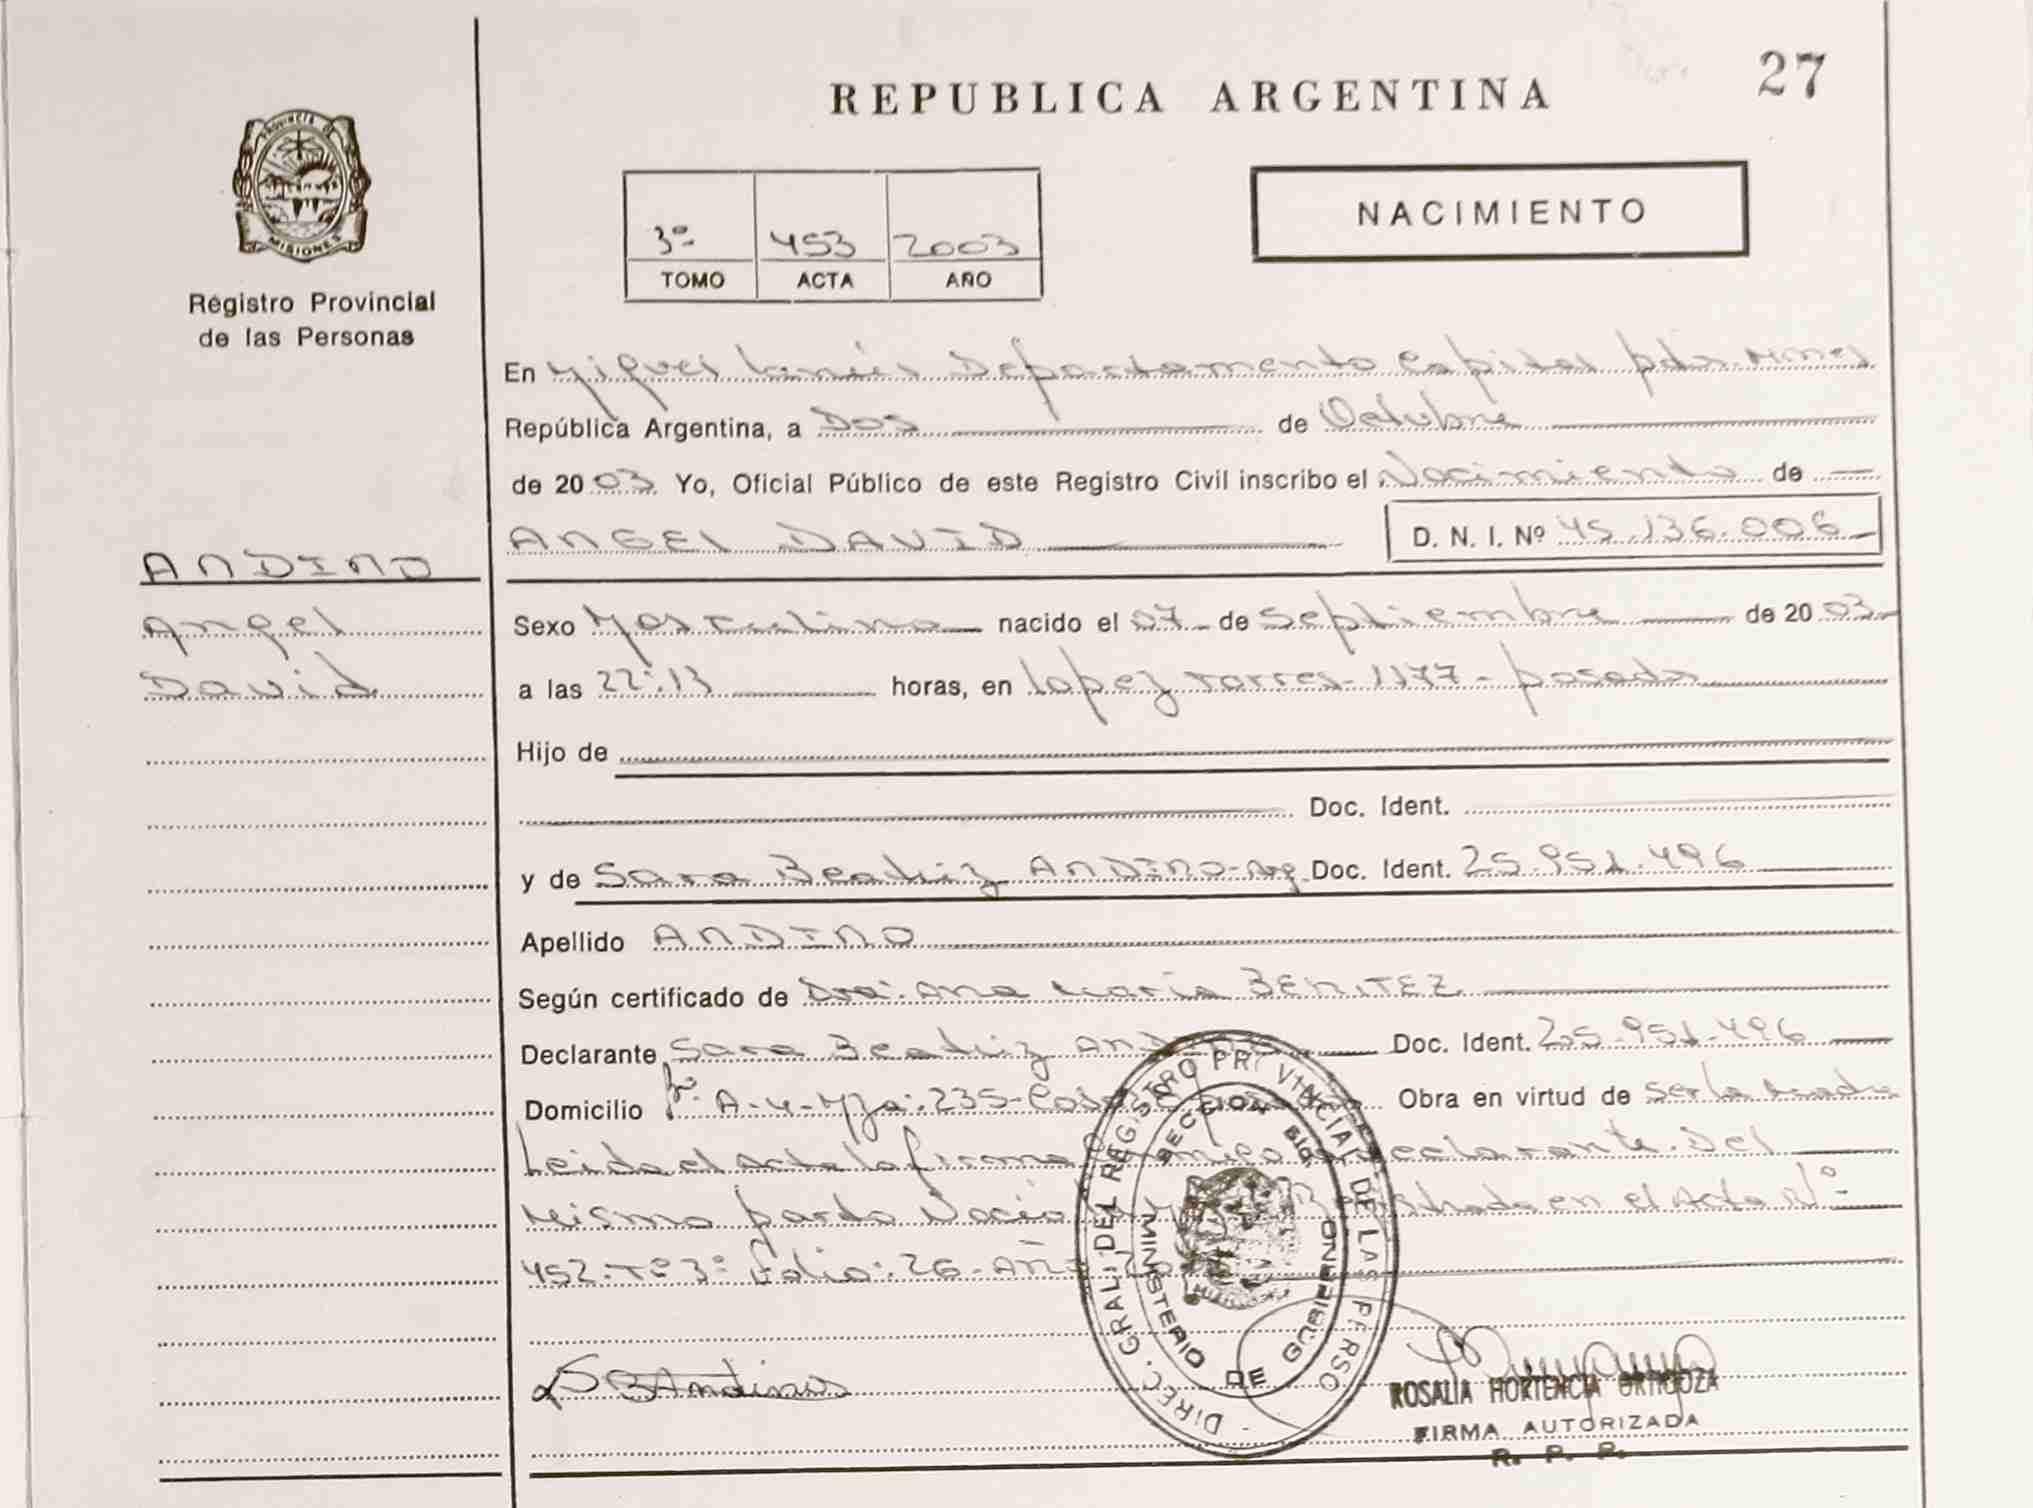 REPUBLICA ARGENTINA
27
PROVINCIA DE
MISIONES
Registro Provincial
de las Personas
3º 453 2003
TOMO ACTA AÑO
NACIMIENTO
En Miguel Lanús Departamento Capital pcia. Mnes
República Argentina, a Dos de Octubre
de 2003 Yo, Oficial Público de este Registro Civil inscribo el Nacimiento de
ANGEL DAVID D. N. I. Nº 45.136.006
ANDINO
Angel
David
Sexo Masculino nacido el 07 de Septiembre de 2003
a las 22:13 horas, en Lopez Torres-1177-posadas
Hijo de
Doc. Ident.
y de Sara Beatriz ANDINO-Arg. Doc. Ident. 25.951.496
Apellido ANDINO
Según certificado de Dra: Ana María BENITEZ
Declarante Sara Beatriz Doc. Ident. 25.951.496
Domicilio A-4-Mza:235-Casa Obra en virtud de ser la madre
Leída el acta la firma conmigo declarante. Del
mismo parto Nació en el Acta Nº
452-Tº3º folio:26-Año
SBAndino
DIREC. GRAL. DEL REGISTRO PROVINCIAL DE LAS PERSO
MINISTERIO DE GOBIERNO
ROSALIA HORTENCIA ORTIGOZA
FIRMA AUTORIZADA
R. P. P.